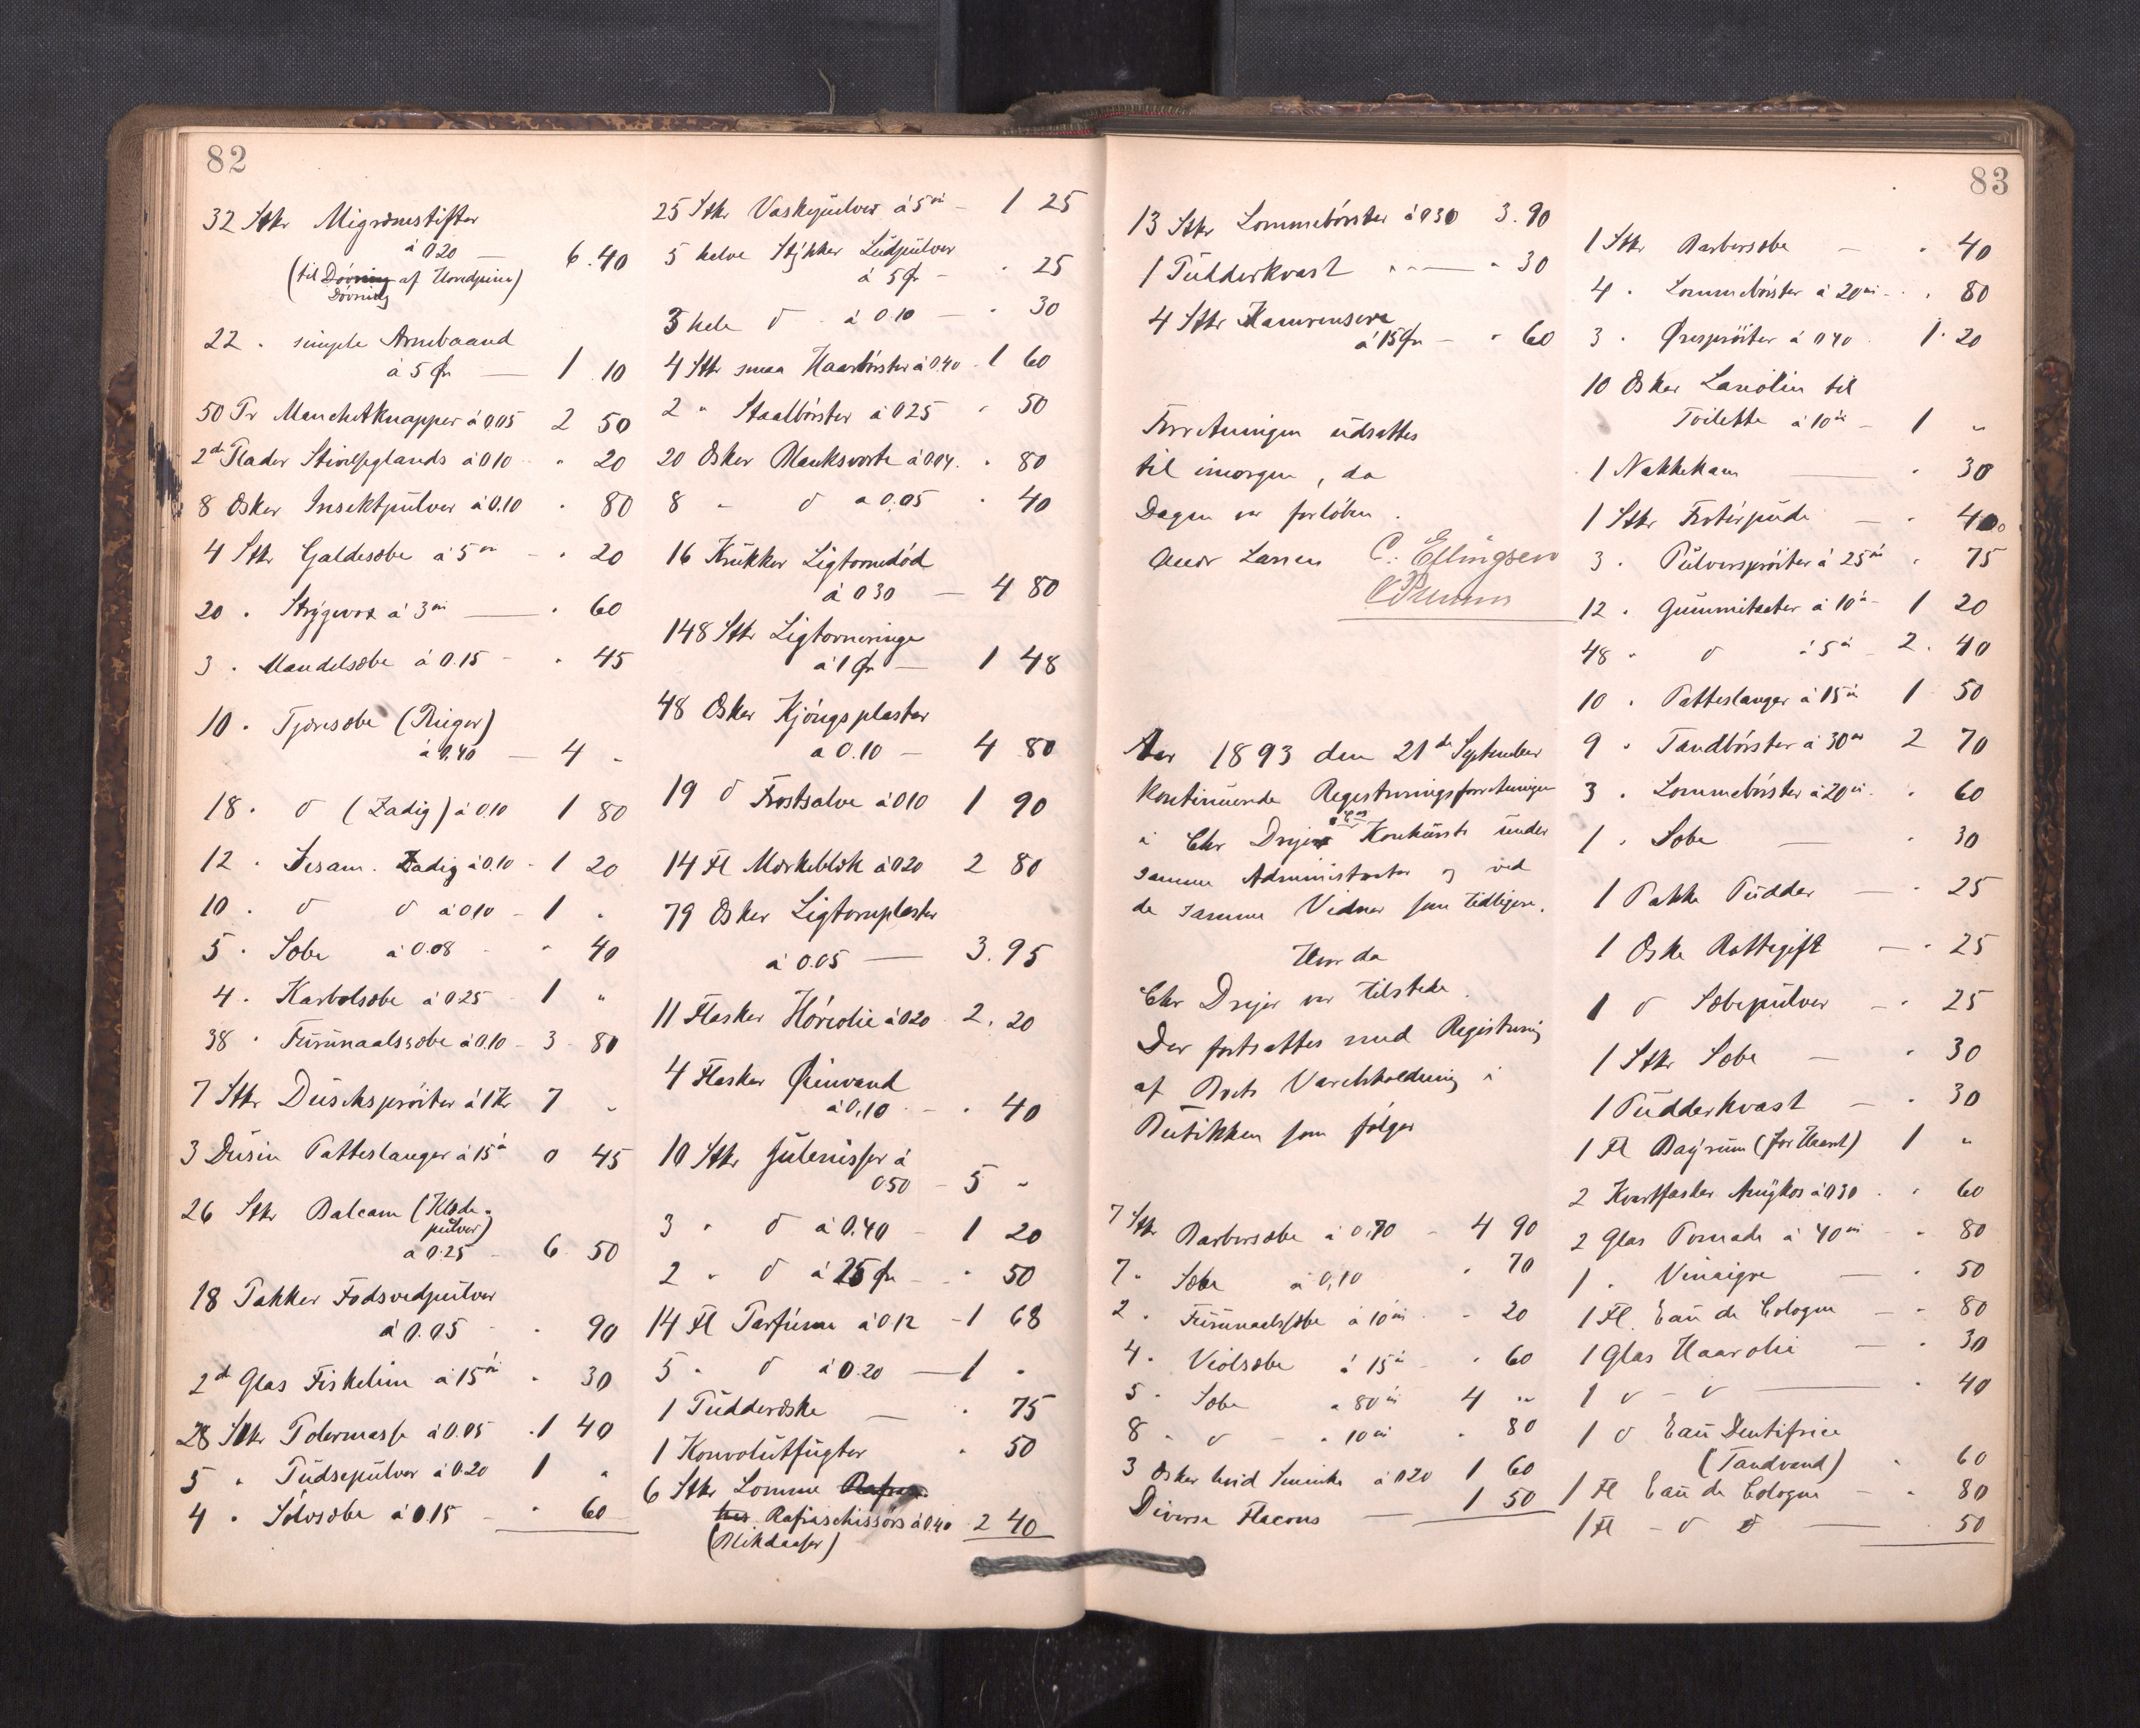 82
32 Stkr Migrænestifter
à 0.20 — 6.40
(til Døvning af Hovedpine)
Døvning
22 . simple Armbaand
à 5 Ør — 1.10
50 Pr Manchetknapper à 0.05 2 50
2de Plader Stivelseglands à 0.10 " 20
8 Æsker Insektpulver à 0.10 " 80
4 Stkr Galdesæbe à 5 ør - " 20
20 . Strygevox à 3 ør — " 60
3 . Mandelsæbe à 0.15 - " 45
10 . Tjæresæbe (Rieger)
à 0.40 — 4 "
18 . d (Zadig) à 0.10 1 80
12 . Sesam. Zadig à 0.10 - 1 20
10 . d d à 0.10 - 1 "
5 . Sæbe à 0.08 - " 40
4 . Karbolsæbe à 0.25 - 1 "
38 . Furunaalssæbe à 0.10 - 3 80
7 Stkr Duschsprøiter à 1 Kr 7 "
3 Dusin Patteslanger à 15 ør 0 45
26 Stkr Balcam (Klæde-
pulver)
à 0.25 - 6 50
18 Pakker Fodsvedpulver
à 0.05 - " 90
2de Glas Fiskelim à 15 ør " 30
28 Stkr Polermasse à 0.05 . 1 40
5 " Pudsepulver à 0.20 1 "
4 " Sølvsæbe à 0.15 - " 60
25 Stkr Vaskepulver à 5 ør - 1 25
5 halve Stykker Ludpulver
à 5 Ør - " 25
3 hele d à 0.10 — " 30
4 Stkr smaa Haarbørster à 0.40 . 1 60
2 " Staalbørster à 0.25 " 50
20 Æsker Blanksværte à 0.04 . " 80
8 - d à 0.05 " 40
16 Krukker Ligtornedød
à 0.30 — 4 80
148 Stkr Ligtorneringe
à 1 Ør — 1 48
48 Æsker Kjøngsplaster
à 0.10 — 4 80
19 d Frostsalve à 0.10 1 90
14 Fl Mærkeblæk à 0.20 2 80
79 Æsker Ligtornplaster
à 0.05 — 3.95
11 Flasker Hørolie à 0.20 2. 20
4 Flasker Øienvand
à 0.10 - " 40
10 Stkr Julenisser à
0.50 - 5 "
3 " d à 0.40 - 1 20
2 " d à 25 Ør - " 50
14 Fl Parfume à 0.12 - 1 68
5 " d à 0.20 — 1 "
1 Pudderæske — " 75
1 Konvolutfugter " 50
6 Stkr Lomme
Rafraichissörs à 0.40 2 40
(Blikdaaser)
83
13 Stkr Lommebørster à 0.30 3.90
1 Pudderkvast " — " 30
4 Stkr Kamrensere
à 15 Ør — " 60
Forretningen udsattes
til imorgen, da
Dagen var forløben.
Andr Larsen C. Ellingsen
CBruun
Aar 1893 den 21de September
kontinuerede Registreringsforretningen
i Chr Drejers Konkursbo under
samme Administrator og ved
de samme Vidner som tidligere.
Hvor da
Chr Drejer var tilstede.
Der fortsattes med Registrering
af Boets Varebeholdning i
Butikken som følger
7 Stkr Barbersæbe à 0.70 - 4 90
7 " Sæbe à 0.10 " 70
2 " Furunaalssæbe à 10 ør - " 20
4 " Violsæbe à 15 ør - " 60
5 " Sæbe à 80 ør 4 "
8 " d - à 10 ør " 80
3 Æsker hvid Sminke à 0.20 1 60
Diverse Flacons — 1 50
1 Stkr Barbersæbe — " 40
4 " Lommebørster à 20 ør - " 80
3 " Øresprøiter à 0.40 1.20
10 Æsker Lanolin til
Toilette à 10 ør - 1 "
1 Nakkekam — " 30
1 Stkr Frotérpude — " 40
3 " Pulversprøiter à 25 ør " 75
12 " Gummitaater à 10 ør - 1 20
48 " d à 5 ør - 2. 40
10 " Patteslanger à 15 ør 1 50
9 " Tandbørster à 30 ør 2 70
3 " Lommebørster à 20 ør - " 60
1 " Sæbe — " 30
1 Pakke Pudder — " 25
1 Æske Rottegift — " 25
1 d Sæbepulver — " 25
1 Stkr Sæbe — " 30
1 Pudderkvast — " 30
1 Fl Bayrum (for Haaret) 1 "
2 Kvartflasker Amykos à 0.30 " 60
2 Glas Pomade à 40 ør - " 80
1 " Vinaigre — " 50
1 Fl. Eau de Cologne — " 80
1 Glas Haarolie — " 30
1 d - d — " 40
1 d Eau Dentifrice
(Tandvand) " 60
1 Fl Eau de Cologne — " 80
1 Fl - d d — " 50